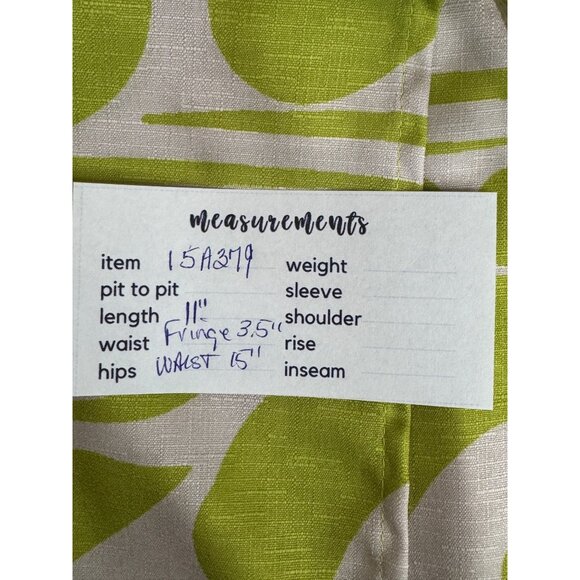 measurements
item 15A379 weight
pit to pit sleeve
length 11" shoulder
waist Fringe 3.5" rise
hips WAIST 15" inseam